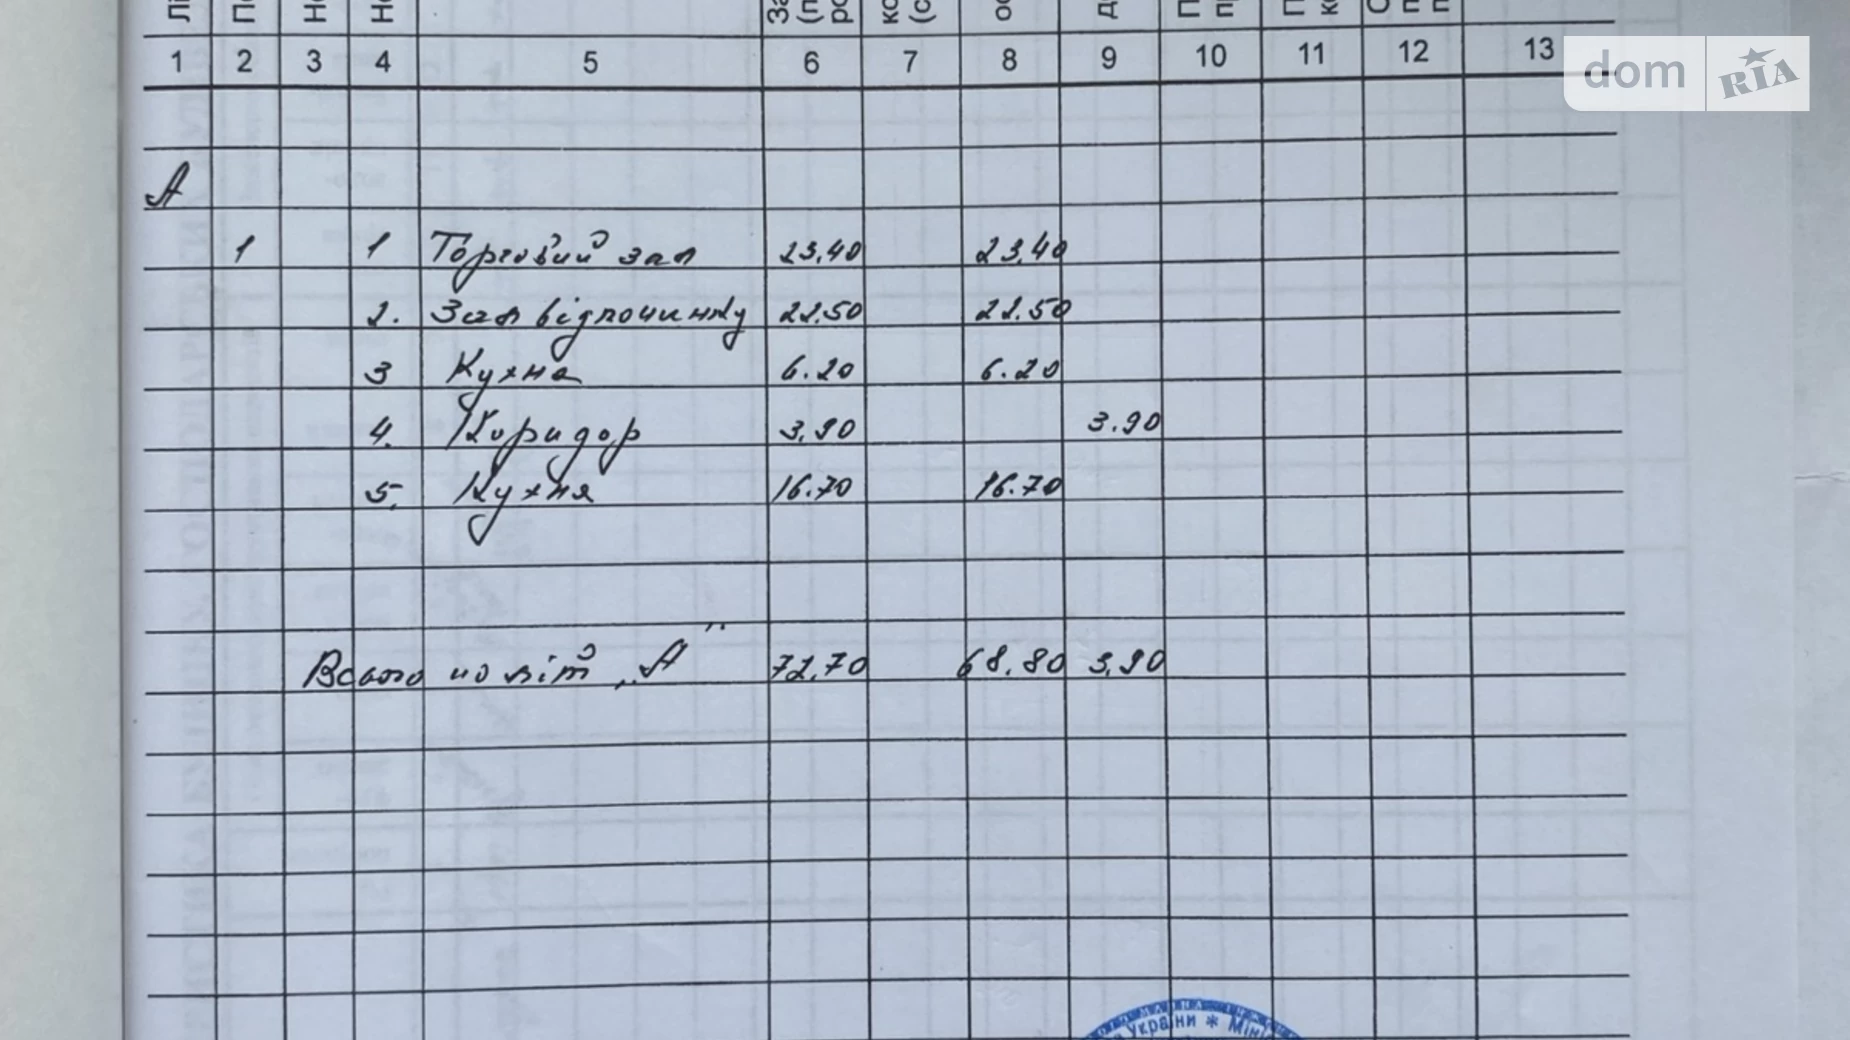 1 2 3 4 5 6 7 8 9 10 11 12 13
dom RIA
А
1 1 Торговий зал 23.40 23.40
2. Зал відпочинку 22.50 22.50
3 Кухня 6.20 6.20
4. Коридор 3.90 3.90
5. Кухня 16.70 16.70
Всього по літ „А" 72.70 68.80 3.90
України * Міні